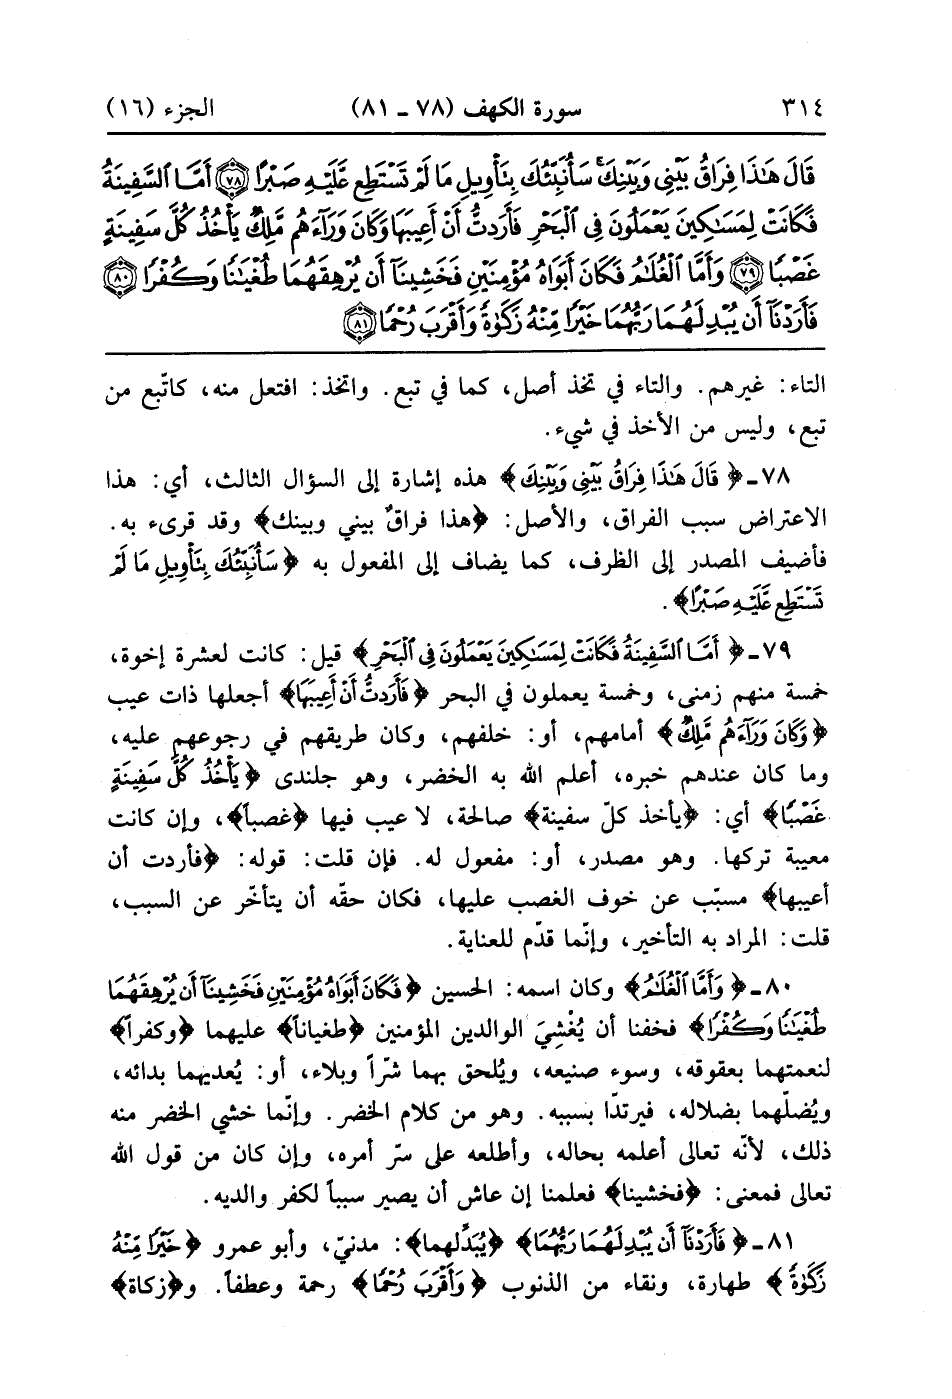 ٣١٤ سورة الكهف (٧٨ ـ ٨١) الجزء (١٦)
قَالَ هَٰذَا فِرَاقُ بَيْنِي وَبَيْنِكَ ۚ سَأُنَبِّئُكَ بِتَأْوِيلِ مَا لَمْ تَسْتَطِع عَّلَيْهِ صَبْرًا ﴿٧٨﴾ أَمَّا السَّفِينَةُ
فَكَانَتْ لِمَسَٰكِينَ يَعْمَلُونَ فِي الْبَحْرِ فَأَرَدتُّ أَنْ أَعِيبَهَا وَكَانَ وَرَآءَهُم مَّلِكٌ يَأْخُذُ كُلَّ سَفِينَةٍ
غَصْبًا ﴿٧٩﴾ وَأَمَّا الْغُلَٰمُ فَكَانَ أَبَوَاهُ مُؤْمِنَيْنِ فَخَشِينَآ أَن يُرْهِقَهُمَا طُغْيَٰنًا وَكُفْرًا ﴿٨٠﴾
فَأَرَدْنَآ أَن يُبْدِلَهُمَا رَبُّهُمَا خَيْرًا مِّنْهُ زَكَوٰةً وَأَقْرَبَ رُحْمًا ﴿٨١﴾
التاء: غيرهم. والتاء في تخذ أصل، كما في تبع. واتخذ: افتعل منه، كاتّبع من
تبع، وليس من الأخذ في شيء.
٧٨ ـ ﴿قَالَ هَٰذَا فِرَاقُ بَيْنِي وَبَيْنِكَ﴾ هذه إشارة إلى السؤال الثالث، أي: هذا
الاعتراض سبب الفراق، والأصل: ﴿هذا فراقٌ بيني وبينك﴾ وقد قرىء به.
فأضيف المصدر إلى الظرف، كما يضاف إلى المفعول به ﴿سَأُنَبِّئُكَ بِتَأْوِيلِ مَا لَمْ
تَسْتَطِع عَّلَيْهِ صَبْرًا﴾.
٧٩ ـ ﴿أَمَّا السَّفِينَةُ فَكَانَتْ لِمَسَٰكِينَ يَعْمَلُونَ فِي الْبَحْرِ﴾ قيل: كانت لعشرة إخوة،
خمسة منهم زمنى، وخمسة يعملون في البحر ﴿فَأَرَدتُّ أَنْ أَعِيبَهَا﴾ أجعلها ذات عيب
﴿وَكَانَ وَرَآءَهُم مَّلِكٌ﴾ أمامهم، أو: خلفهم، وكان طريقهم في رجوعهم عليه،
وما كان عندهم خبره، أعلم الله به الخضر، وهو جلندى ﴿يَأْخُذُ كُلَّ سَفِينَةٍ
غَصْبًا﴾ أي: ﴿يأخذ كلّ سفينة﴾ صالحة، لا عيب فيها ﴿غصباً﴾، وإن كانت
معيبة تركها. وهو مصدر، أو: مفعول له. فإن قلت: قوله: ﴿فأردت أن
أعيبها﴾ مسبّب عن خوف الغصب عليها، فكان حقّه أن يتأخّر عن السبب،
قلت: المراد به التأخير، وإنّما قدّم للعناية.
٨٠ ـ ﴿وَأَمَّا الْغُلَٰمُ﴾ وكان اسمه: الحسين ﴿فَكَانَ أَبَوَاهُ مُؤْمِنَيْنِ فَخَشِينَآ أَن يُرْهِقَهُمَا
طُغْيَٰنًا وَكُفْرًا﴾ فخفنا أن يُغْشِيَ الوالدين المؤمنين ﴿طغياناً﴾ عليهما ﴿وكفراً﴾
لنعمتهما بعقوقه، وسوء صنيعه، ويُلحق بهما شرّاً وبلاء، أو: يُعديهما بدائه،
ويُضلّهما بضلاله، فيرتدّا بسببه. وهو من كلام الخضر. وإنّما خشي الخضر منه
ذلك، لأنّه تعالى أعلمه بحاله، وأطلعه على سرّ أمره، وإن كان من قول الله
تعالى فمعنى: ﴿فخشينا﴾ فعلمنا إن عاش أن يصير سبباً لكفر والديه.
٨١ ـ ﴿فَأَرَدْنَآ أَن يُبْدِلَهُمَا رَبُّهُمَا﴾ ﴿يُبَدِّلهما﴾: مدنيّ، وأبو عمرو ﴿خَيْرًا مِّنْهُ
زَكَوٰةً﴾ طهارة، ونقاء من الذنوب ﴿وَأَقْرَبَ رُحْمًا﴾ رحمة وعطفاً. و﴿زكاة﴾